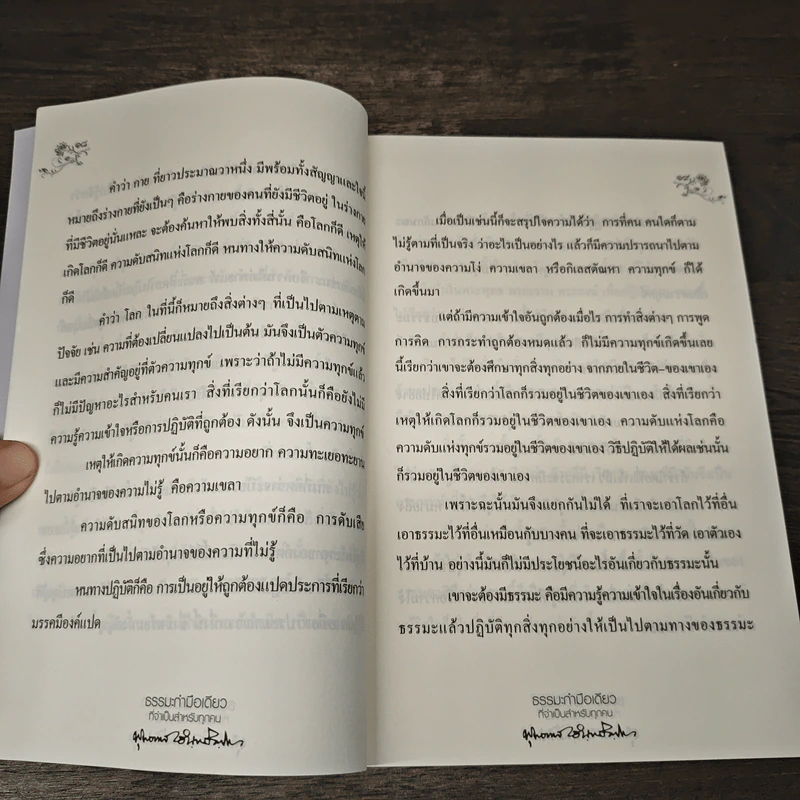 คำว่า กาย ที่ยาวประมาณวาหนึ่ง มีพร้อมทั้งสัญญาและใจนี้
หมายถึงร่างกายที่ยังเป็นๆ คือร่างกายของคนที่ยังมีชีวิตอยู่ ในร่างกาย
ที่มีชีวิตอยู่นั่นแหละ จะต้องค้นหาให้พบสิ่งทั้งสี่นั้น คือโลกก็ดี เหตุให้
เกิดโลกก็ดี ความดับสนิทแห่งโลกก็ดี หนทางให้ความดับสนิทแห่งโลก
ก็ดี
คำว่า โลก ในที่นี้ก็หมายถึงสิ่งต่างๆ ที่เป็นไปตามเหตุตาม
ปัจจัย เช่น ความที่ต้องเปลี่ยนแปลงไปเป็นต้น มันจึงเป็นตัวความทุกข์
และมีความสำคัญอยู่ที่ตัวความทุกข์ เพราะว่าถ้าไม่มีความทุกข์แล้ว
ก็ไม่มีปัญหาอะไรสำหรับคนเรา สิ่งที่เรียกว่าโลกนั้นก็คือยังไม่มี
ความรู้ความเข้าใจหรือการปฏิบัติที่ถูกต้อง ดังนั้น จึงเป็นความทุกข์
เหตุให้เกิดความทุกข์นั้นก็คือความอยาก ความทะเยอทะยาน
ไปตามอำนาจของความไม่รู้ คือความเขลา
ความดับสนิทของโลกหรือความทุกข์ก็คือ การดับเสีย
ซึ่งความอยากที่เป็นไปตามอำนาจของความที่ไม่รู้
หนทางปฏิบัติก็คือ การเป็นอยู่ให้ถูกต้องแปดประการที่เรียกว่า
มรรคมีองค์แปด
ธรรมะกำมือเดียว
ที่จำเป็นสำหรับทุกคน
พุทธทาส อินทปัญโญ
เมื่อเป็นเช่นนี้ก็จะสรุปใจความได้ว่า การที่คน คนใดก็ตาม
ไม่รู้ตามที่เป็นจริง ว่าอะไรเป็นอย่างไร แล้วก็มีความปรารถนาไปตาม
อำนาจของความโง่ ความเขลา หรือกิเลสตัณหา ความทุกข์ ก็ได้
เกิดขึ้นมา
แต่ถ้ามีความเข้าใจอันถูกต้องเมื่อไร การทำสิ่งต่างๆ การพูด
การคิด การกระทำถูกต้องหมดแล้ว ก็ไม่มีความทุกข์เกิดขึ้นเลย
นี้เรียกว่าเขาจะต้องศึกษาทุกสิ่งทุกอย่าง จากภายในชีวิต-ของเขาเอง
สิ่งที่เรียกว่าโลกก็รวมอยู่ในชีวิตของเขาเอง สิ่งที่เรียกว่า
เหตุให้เกิดโลกก็รวมอยู่ในชีวิตของเขาเอง ความดับแห่งโลกคือ
ความดับแห่งทุกข์รวมอยู่ในชีวิตของเขาเอง วิธีปฏิบัติให้ได้ผลเช่นนั้น
ก็รวมอยู่ในชีวิตของเขาเอง
เพราะฉะนั้นมันจึงแยกกันไม่ได้ ที่เราจะเอาโลกไว้ที่อื่น
เอาธรรมะไว้ที่อื่นเหมือนกับบางคน ที่จะเอาธรรมะไว้ที่วัด เอาตัวเอง
ไว้ที่บ้าน อย่างนี้มันก็ไม่มีประโยชน์อะไรอันเกี่ยวกับธรรมะนั้น
เขาจะต้องมีธรรมะ คือมีความรู้ความเข้าใจในเรื่องอันเกี่ยวกับ
ธรรมะแล้วปฏิบัติทุกสิ่งทุกอย่างให้เป็นไปตามทางของธรรมะ
ธรรมะกำมือเดียว
ที่จำเป็นสำหรับทุกคน
พุทธทาส อินทปัญโญ